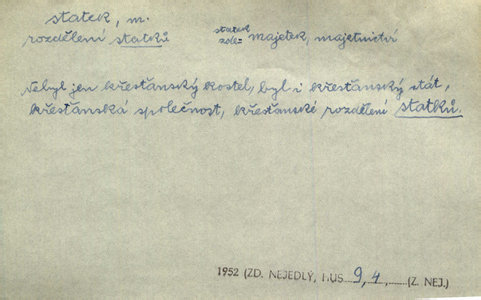 statek, m.
rozdělení statků
statek
zde= majetek, majetnictví
Nebyl jen křesťanský kostel, byl i křesťanský stát,
křesťanská společnost, křesťanské rozdělení statků.
1952 (ZD. NEJEDLÝ, HUS 9, 4, (Z. NEJ.)